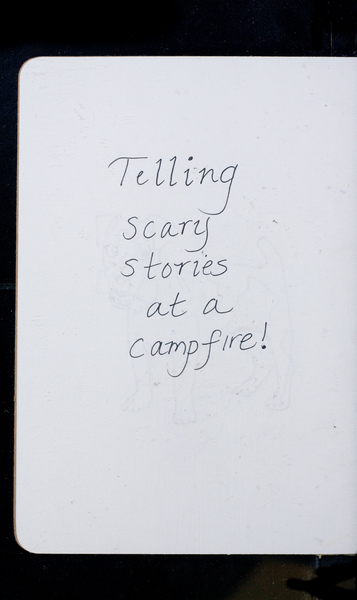 Telling
scary
stories
at a
campfire!